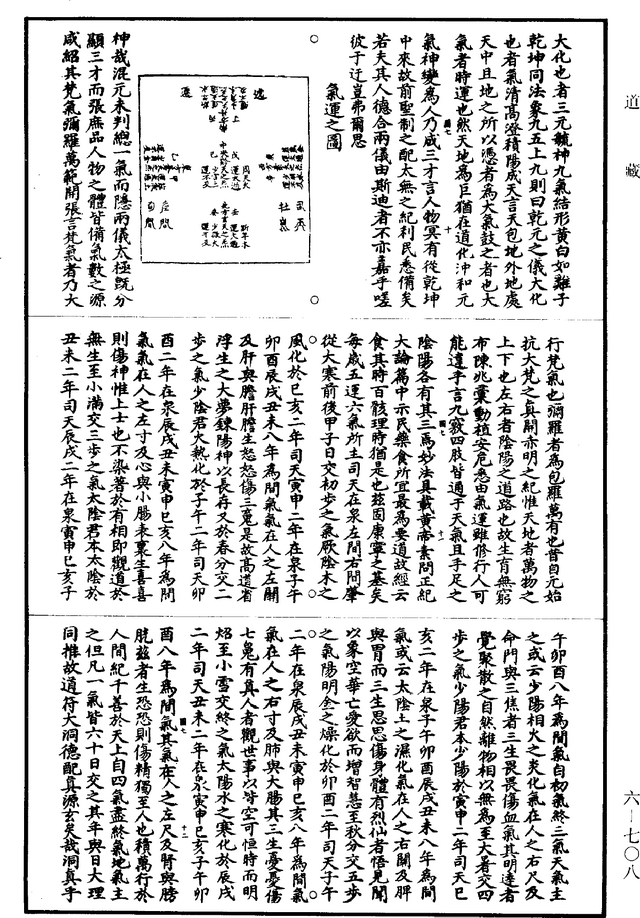 道藏
大化也者三元毓神九氣結形黃白如雞子
乾坤同法象九五上九則曰乾元之儀大化
也者氣清高澄積陽成天言天包地外地處
天中且地之所以憑者為大氣鼓之者也大
氣者時運也然天地為巨猶在道化沖和元
氣神變為人乃成三才言人物冥有從乾坤
中來故前聖制之配太無之紀利民悉備矣
若夫其人德合兩儀由斯迪者不亦嘉乎嗟
彼于迂豈弗爾思
氣運之圖
神哉混元未判總一氣而隱兩儀太極既分
顯三才而張庶品人物之體皆備氣數之源
咸紹其梵氣彌羅萬範開張言梵氣者乃大
行梵氣也彌羅者為包羅萬有也昔自元始
抗大梵之真開赤明之紀惟天地者萬物之
上下也左右者陰陽之道路也故生育無窮
布陳兆彙動植安危悉由氣運雖修行人可
能違乎言九竅四肢皆通于天氣且手足之
陰陽各有其三焉妙法具載黃帝素問正紀
大論篇中示民藥食所宜最為要道故經云
食其時百骸理時猶是也兹固康寧之基矣
每歲五運六氣所主司天在泉左間右間肇
從大寒前後甲子日交初步之氣厥陰木之
風化於巳亥二年司天寅申二年在泉子午
卯酉辰戌丑未八年為間氣氣在人之左關
及肝與膽肝膽生怒怒傷三䰟是故高道省
浮生之大夢鍊陽神以長存又於春分交二
步之氣少陰君火熱化於子午二年司天卯
酉二年在泉辰戌丑未寅申巳亥八年為間
氣氣在人之左寸及心與小腸表裏生喜喜
則傷神惟上士也不染著於有相即觀道於
無生至小滿交三步之氣太陰君本太陰於
丑未二年司天辰戌二年在泉寅申巳亥子
午卯酉八年為間氣自初氣終三氣天氣主
之或云少陽相火之炎化氣在人之右尺及
命門與三焦者三生畏畏傷血氣其明達者
覺聚散之自然離物相以無為至大暑交四
步之氣少陽君本少陽於寅申二年司天巳
亥二年在泉子午卯酉辰戌丑未八年為間
氣或云太陰土之濕化氣在人之右關及脾
與胃而三生思思傷身體有烈仙者悟見聞
以象空華亡愛欲而增智慧至秋分交五步
之氣陽明金之燥化於卯酉二年司天子午
二年在泉辰戌丑未寅申巳亥八年為間氣
氣在人之右寸及肺與大腸其三生憂憂傷
七魄有真人者觀世事以皆空可恒時而明
炤至小雪交終之氣太陽水之寒化於辰戌
二年司天丑未二年在泉寅申巳亥子午卯
酉八年為間氣其氣在人之左尺及腎與膀
胱兹者生恐恐則傷精獨至人也積萬行於
人間紀千善於天上自四氣盡終氣地氣主
之但凡一氣皆六十日交之其年與日大理
同推故道符大洞德配真源玄矣哉洞真乎
六一七〇八